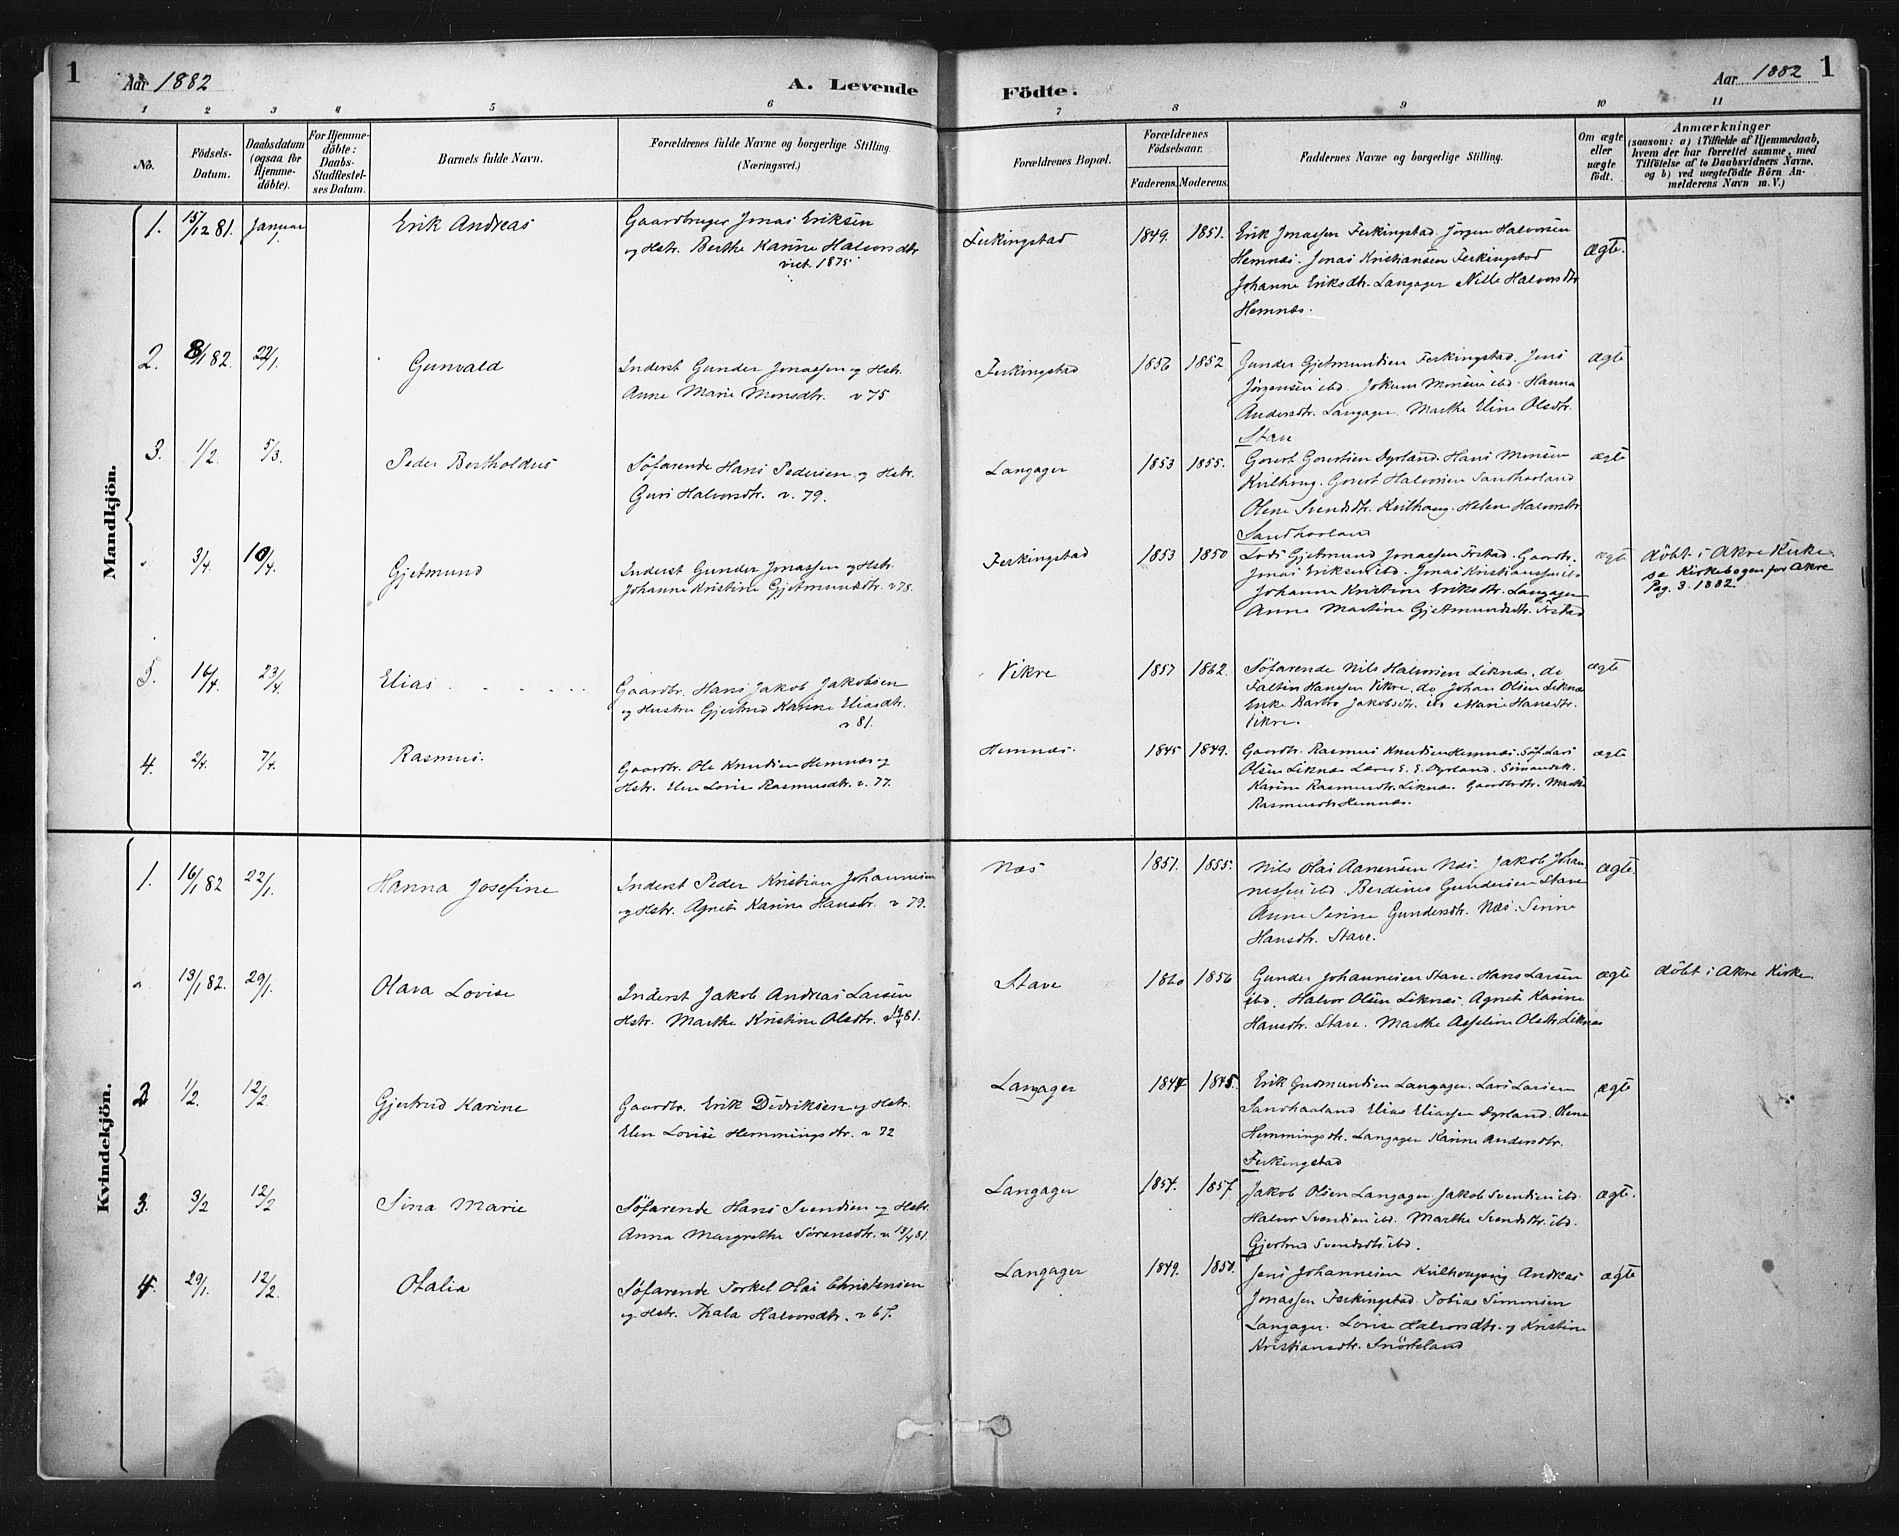 1
Aar 1882
A. Levende Födte.
Aar 1882
1
1 2 3 4 5 6 7 8 9 10 11
No.
Födsels-Datum.
Daabsdatum (ogsaa for Hjemme-döbte).
For Hjemme-döbte: Daabs-Stadfæstel-ses Datum.
Barnets fulde Navn.
Forældrenes fulde Navne og borgerlige Stilling.
(Næringsvei.)
Forældrenes Bopæl.
Forældrenes Födselsaar.
Faderens. Moderens.
Faddernes Navne og borgerlige Stilling.
Om ægte eller uægte födt.
Anmærkninger
(saasom: a) i Tilfælde af Hjemmedaab,
hvem der har forrettet samme, med
Tilföielse af to Daabsvidners Navne.
og b) ved uægtefödte Börn An-
melderens Navn m. V.)
Mandkjön.
1. 15/12 81. Januar 1. Erik Andreas
Gaardbruger Jonas Eriksen
og Hstr. Berthe Karine Halvorsdtr
viet 1875
Ferkingstad 1849. 1851.
Erik Jonassen Ferkingstad. Jörgen Halvorsen
Hemnæs. Jonas Kristiansen Ferkingstad
Johanne Eriksdtr. Langager Nille Halvorsdtr
Hemnæs.
ægte.
2. 8/1 82 22/1. Gunvald
Inderst Gunder Jonassen og Hstr.
Anne Marie Monsdtr. v 75
Ferkingstad 1856 1852
Gunder Gjetmundsen Ferkingstad. Jens
Jörgensen ibd. Jokum Monsen ibd. Hanna
Andersdtr. Langager. Marthe Eline Olsdtr.
Stave
ægte
3. 1/2. 5/3. Peder Bertholdus
Söfarende Hans Pedersen og Hstr.
Guri Halvorsdtr. v. 79.
Langager 1853 1855.
Govert Govertsen Dyrland. Hans Monsen
Kvilhaug. Govert Halvorsen Sandhaaland
Olene Svendsdtr. Kvilhaug. Helene Halvorsdtr
Sandhaaland
ægte
3/4. 10/4. Gjetmund
Inderst Gunder Jonassen og Hstr.
Johanne Kristine Gjetmundsdtr. v 78.
Ferkingstad 1853 1850
Lods Gjetmund Jonassen Frstad. Gaardbr.
Jonas Eriksen ibd. Jonas Kristianssen ibd
Johanne Kristine Eriksdtr. Langager
Anne Martine Gjetmundsdtr. Frstad
ægte
döbt i Akre Kirke
se Kirkebogen for Akre
Pag. 3. 1882.
5. 16/4. 23/4. Elias
Gaardbr. Hans Jakob Jakobsen
og Hustru Gjertrud Karine Eliasdtr.
v 81.
Vikre 1857 1862.
Söfarende Nils Halvorsen Liknæs, do
Faltin Hanssen Vikre, do Johan Olsen Liknæs
Enke Barbro Jakobsdtr. ibd Marie Hansdtr.
Vikre.
ægte
4. 2/4. 7/4. Rasmus.
Gaardbr. Ole Knudsen Hemnæs og
Hstr. Elen Lovise Rasmusdtr. v. 77.
Hemnæs. 1845 1849.
Gaardbr. Rasmus Knudsen Hemnæs. Söf. Lars
Olsen Liknæs Lærer E. E. Dyrland. Sömandsk.
Karine Rasmusdtr. Liknæs. Gaardbrdtr. Marthe
Rasmusdtr Hemnæs.
ægte
Kvindekjön.
1. 16/1 82 22/1. Hanna Josefine
Inderst Peder Kristian Johannesen
og Hstr. Agnete Karine Hansdtr. v 79.
Næs 1851. 1855.
Nils Olai Aanensen Næs. Jakob Johan-
nessen ibd. Berdines Gundersen Stave
Anne Serine Gundersdtr. Næs. Serine
Hansdtr. Stave.
ægte.
13/1 82. 29/1. Olava Lovise
Inderst Jakob Andreas Larsen
Hstr. Marthe Kristine Olsdtr. v 81.
Stave 1860 1856
Gunder Johannesen Stave. Hans Larsen
ibd. Halvor Olsen Liknæs. Agnete Karine
Hansdtr. Stave. Marthe Asseline Olsdtr. Liknæs
ægte
döbt i Akre Kirke.
2 1/2. 12/2. Gjertrud Karine
Gaardbr. Erik Didriksen og Hstr.
Elen Lovise Hemmingsdtr. v 72
Langager 1847 1845.
Erik Gudmundsen Langager. Lars Larsen
Sandhaaland Elias Eliassen Dyrland. Olene
Hemmingsdtr. Langager Karine Andersdtr.
Ferkingstad
ægte
3. 3/2 12/2 Sina Marie
Söfarende Hans Svendsen og Hstr.
Anna Margrethe Sörensdtr. v 13/4 81.
Langager 1854. 1857.
Jakob Olsen Langager. Jakob Svendsen ibd.
Halvor Svendsen ibd. Marthe Svendsdtr. ibd.
Gjertrud Svendsdtr. ibd.
ægte.
4. 29/1. 12/2. Otalia
Söfarende Torkel Olai Christensen
og Hstr. Thala Halvorsdtr. v 67.
Langager 1849. 1850.
Jens Johannesen Kvilhaugsvig Andreas
Jonassen Ferkingstad. Tobias Simonsen
Langager. Lovise Halvorsdtr. og Kristine
Kristiansdtr. Snörteland
ægte